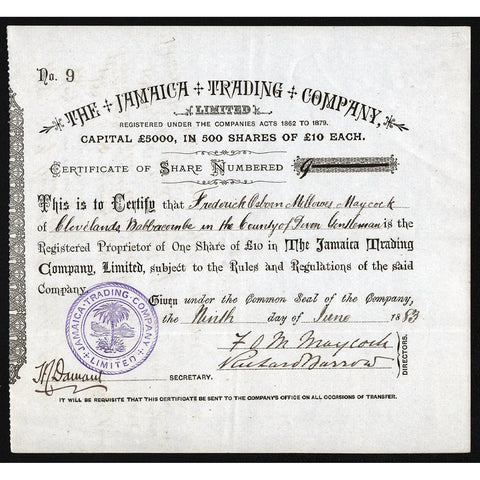 No. 9
THE JAMAICA TRADING COMPANY,
LIMITED
REGISTERED UNDER THE COMPANIES ACTS 1862 TO 1879.
CAPITAL £5000, IN 500 SHARES OF £10 EACH.
CERTIFICATE OF SHARE NUMBERED 9
This is to Certify that Frederick Osborn Mellowes Maycock
of Clevelands Babbacombe in the County of Devon Gentleman is the
Registered Proprietor of One Share of £10 in The Jamaica Trading
Company, Limited, subject to the Rules and Regulations of the said
Company.
Given under the Common Seal of the Company,
the Ninth day of June 1883
JAMAICA·TRADING·COMPANY
LIMITED
F O M Maycock
Richard Barrow
DIRECTORS.
Damant
SECRETARY.
IT WILL BE REQUISITE THAT THIS CERTIFICATE BE SENT TO THE COMPANY'S OFFICE ON ALL OCCASIONS OF TRANSFER.